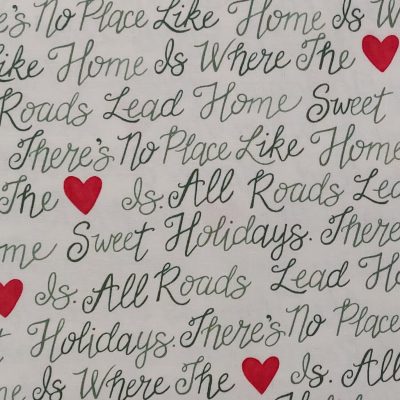 e's No Place Like Home Is W
ike Home Is Where The
Roads Lead Home Sweet
There's No Place Like Home
The Is. All Roads Lea
me Sweet Holidays. There
Is. All Roads Lead H
t Holidays. There's No Place
e Is Where The Is. All